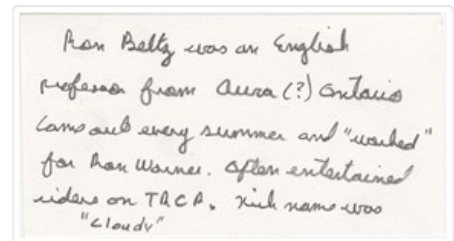 Ron Beltz was an English
professor from Aura (?) Ontario
Came out every summer and "worked"
for Ron Warner. Often entertained
riders on TRCP. Nick name was
"Cloudy"